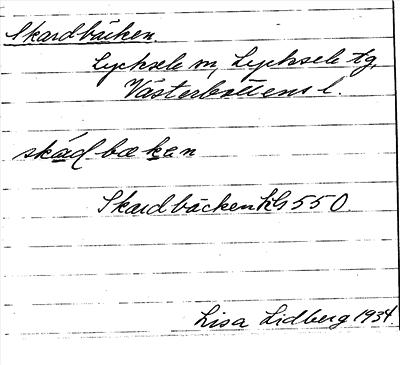 Skardbäcken.
Lycksele m, Lycksele tg,
Västerbottens l.
skád-bœken
Skardbäcken kG 550.
Lisa Lidberg 1934.